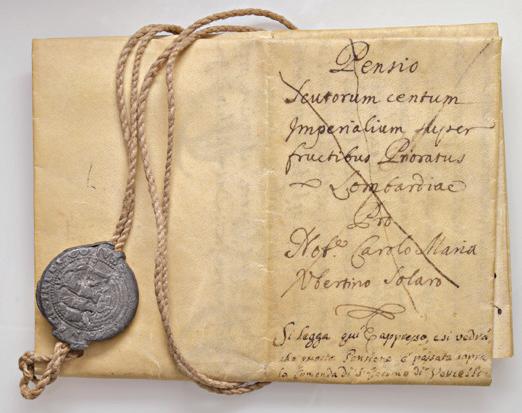 Pensio
Scutorum centum
Imperialium super
fructibus Prioratus
Lombardiae
Pro
Nob.e Carolo Maria
Ubertino Solaro
Si legga qui appresso, e si vedrà
che questa Pensione è passata sopra
la Comenda di S. Giacomo di Vercelli